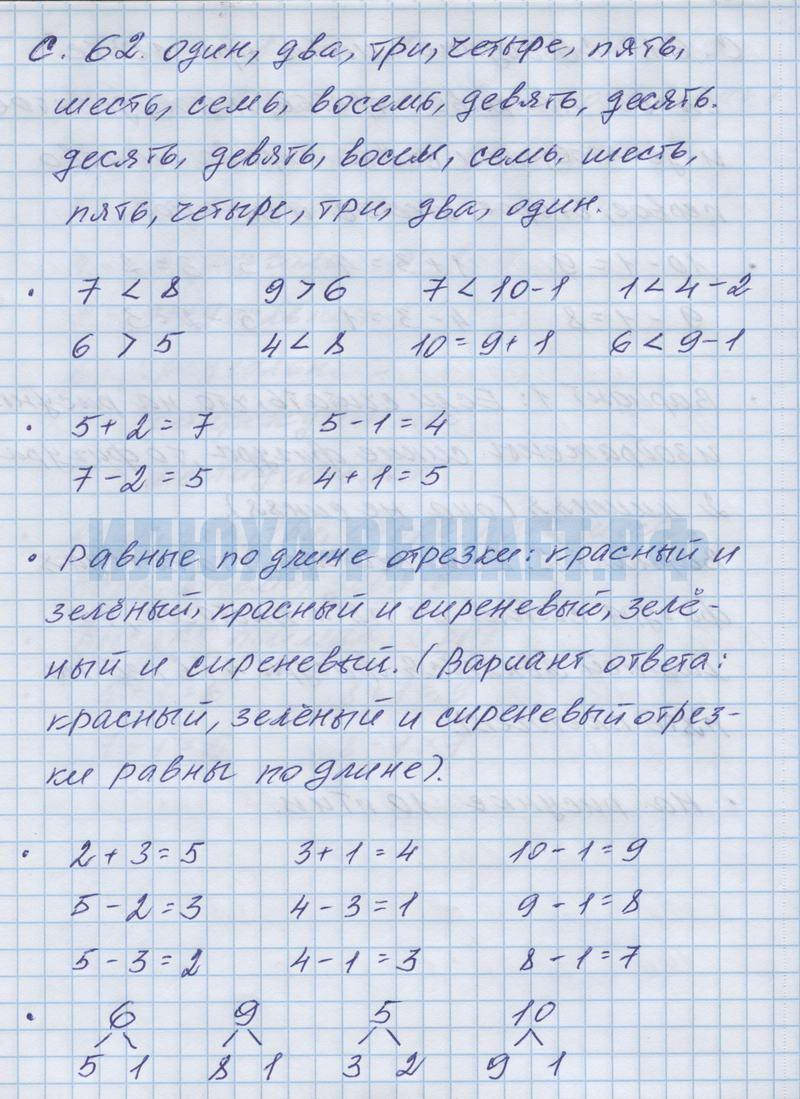 с. 62. один, два, три, четыре, пять,
шесть, семь, восемь, девять, десять.
десять, девять, восем, семь, шесть,
пять, четыре, три, два, один.
• 7 < 8 9 > 6 7 < 10-1 1 < 4-2
6 > 5 4 < 8 10 = 9+1 6 < 9-1
• 5+2=7 5-1=4
7-2=5 4+1=5
ИЛЮХА-РЕШАЕТ.РФ
• Равные по длине отрезки: красный и
зелёный, красный и сиреневый, зелё-
ный и сиреневый. (Вариант ответа:
красный, зелёный и сиреневый отрез-
ки равны по длине).
• 2+3=5 3+1=4 10-1=9
5-2=3 4-3=1 9-1=8
5-3=2 4-1=3 8-1=7
• 6 9 5 10
5 1 8 1 3 2 9 1